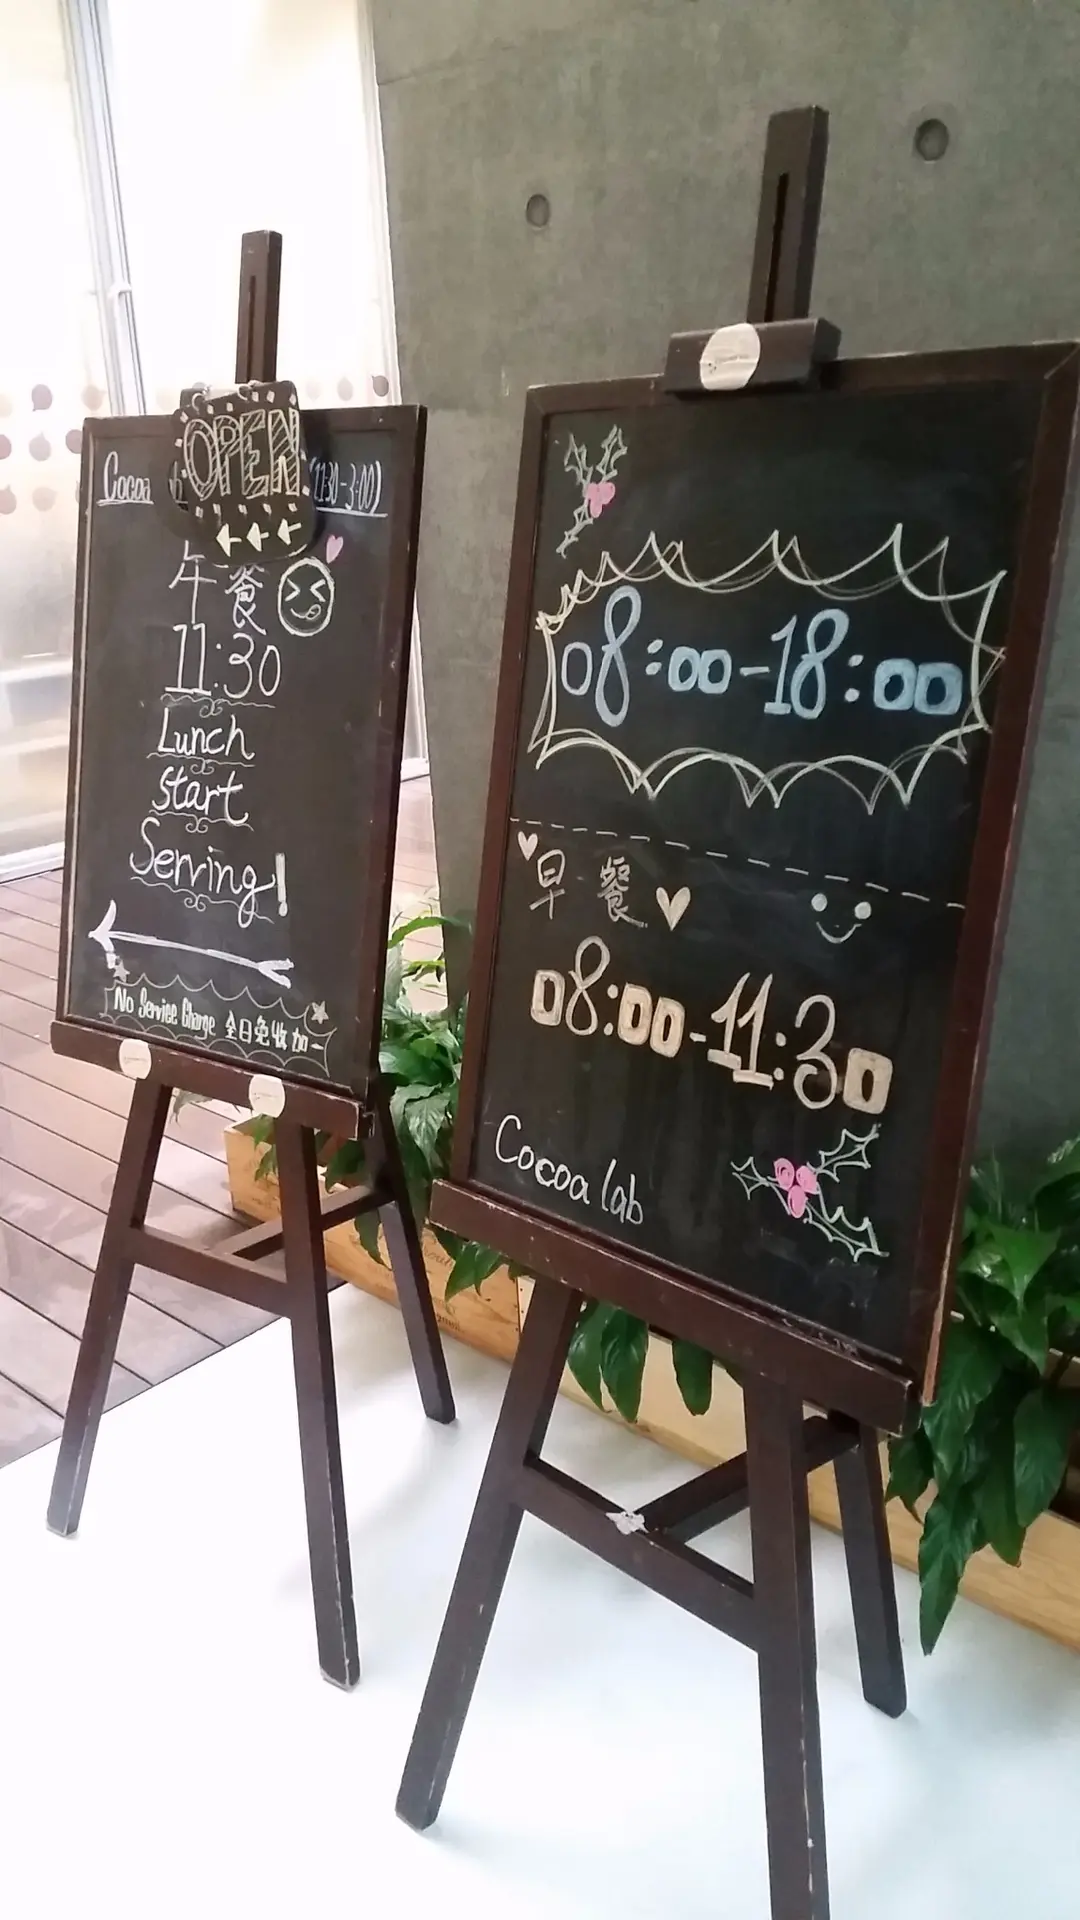 OPEN
Cocoa (11:30-3:00)
午餐
11:30
Lunch
start
Serving!
No Service Charge 全日免收加一
08:00-18:00
早餐
08:00-11:30
Cocoa lab